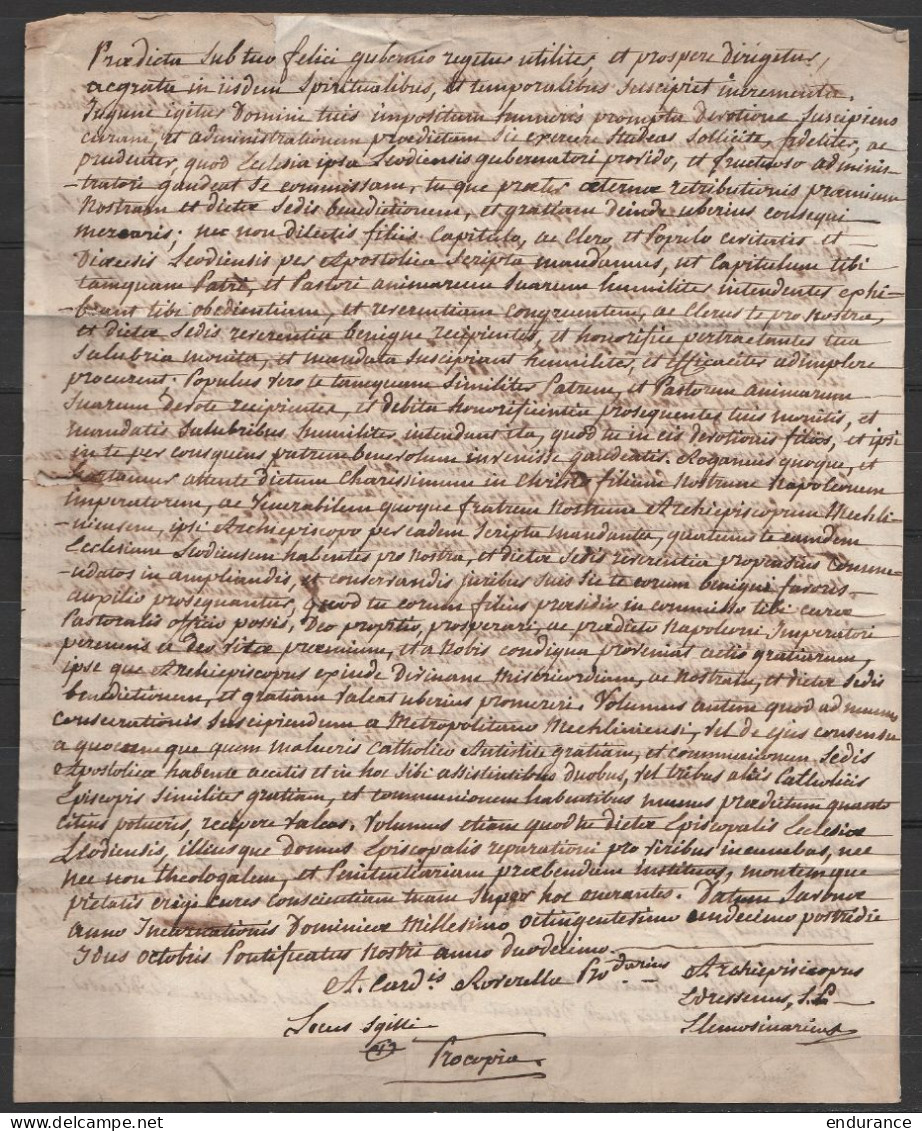 Prædicta sub tuo felici gubernio regetur utiliter, et prospere dirigetur,
ac grata in iisdem spiritualibus, et temporalibus suscipiet incrementa.
Jugum igitur Domini tuis impositum humeris prompta devotione suscipiens
curam, et administrationem prædictam sic exercere studeas sollicite, fideliter, ac
prudenter, quod Ecclesia ipsa Leodiensis gubernatori provido, et fructuoso adminis-
-tratori gaudeat se commissam, tu que præter æternæ retributionis præmium
Nostram et dictæ Sedis benedictionem, et gratiam deinde uberius consequi
merearis; nec non dilectis filiis Capitulo, ac Clero, et Populo civitatis et
Diœcesis Leodiensis per Apostolica scripta mandamus, ut Capitulum tibi
tamquam Patri, et Pastori animarum suarum humiliter intendentes exhi-
-beant tibi obedientiam, et reverentiam congruentem, ac Clerus te pro Nostra,
et dictæ Sedis reverentia benigne recipientes, et honorifice pertractantes tua
salubria monita, et mandata suscipiant humiliter, et efficaciter adimplere
procurent; Populus vero te tamquam similiter Patrem, et Pastorem animarum
suarum devote recipientes, et debita honorificentia prosequentes tuis monitis, et
mandatis salubribus humiliter intendant ita, quod tu in eis devotionis filios, et ipsi
in te per consequens patrem benevolum invenisse gaudeatis. Rogamus quoque, et
hortamur attente dictum Charissimum in Christo filium Nostrum Napoleonem
imperatorem, ac Venerabilem quoque fratrem Nostrum Archiepiscopum Mechli-
-niensem, ipsi Archiepiscopo per eadem scripta mandantes, quatenus te eamdem
Ecclesiam Leodiensem habentes pro Nostra, et dictæ Sedis reverentia propensius comme-
-ndatos in ampliandis, et conservandis juribus suis sic te eorum benigni favoris
auxilio prosequantur, quod tu eorum præsidio in commisso tibi curæ
Pastoralis officio possis, Deo propitio, prosperari, ac prædicto Napoleoni Imperatori
perennis a deo vitæ præmium, et a Nobis condigna proveniat actio gratiarum,
ipse que Archiepiscopus exinde Divinam misericordiam, ac Nostram, et dictæ Sedis
benedictionem, et gratiam valeat uberius promereri. Volumus autem quod ad munus
consecrationis suscipiendum a Metropolitano Mechliniensi, vel de ejus consensu
a quocumque quem malueris Catholico Antistite gratiam, et communionem Sedis
Apostolicæ habente accitis et in hoc sibi assistentibus duobus, vel tribus aliis Catholicis
Episcopis similiter gratiam, et communionem habentibus munus prædictum quanto
citius poteris, recipere valeas. Volumus etiam quod tu dictæ Episcopalis Ecclesiæ
Leodiensis, illiusque Domus Episcopalis reparationi pro viribus incumbas, nec
nec non theologalem, et Pœnitentiariam præbendam instituas, montemque
pietatis erigi cures conscientiam tuam super hoc onerantes. Datum Savonæ
anno Incarnationis Dominicæ Millesimo octingentesimo undecimo postridie
Idus octobris Pontificatus Nostri anno duodecimo.
A. Card.is Roverella Pro Datarius
Archiepiscopus
Edessenus, S. P.
Elemosinarius
Locus sgilli
Pro copia